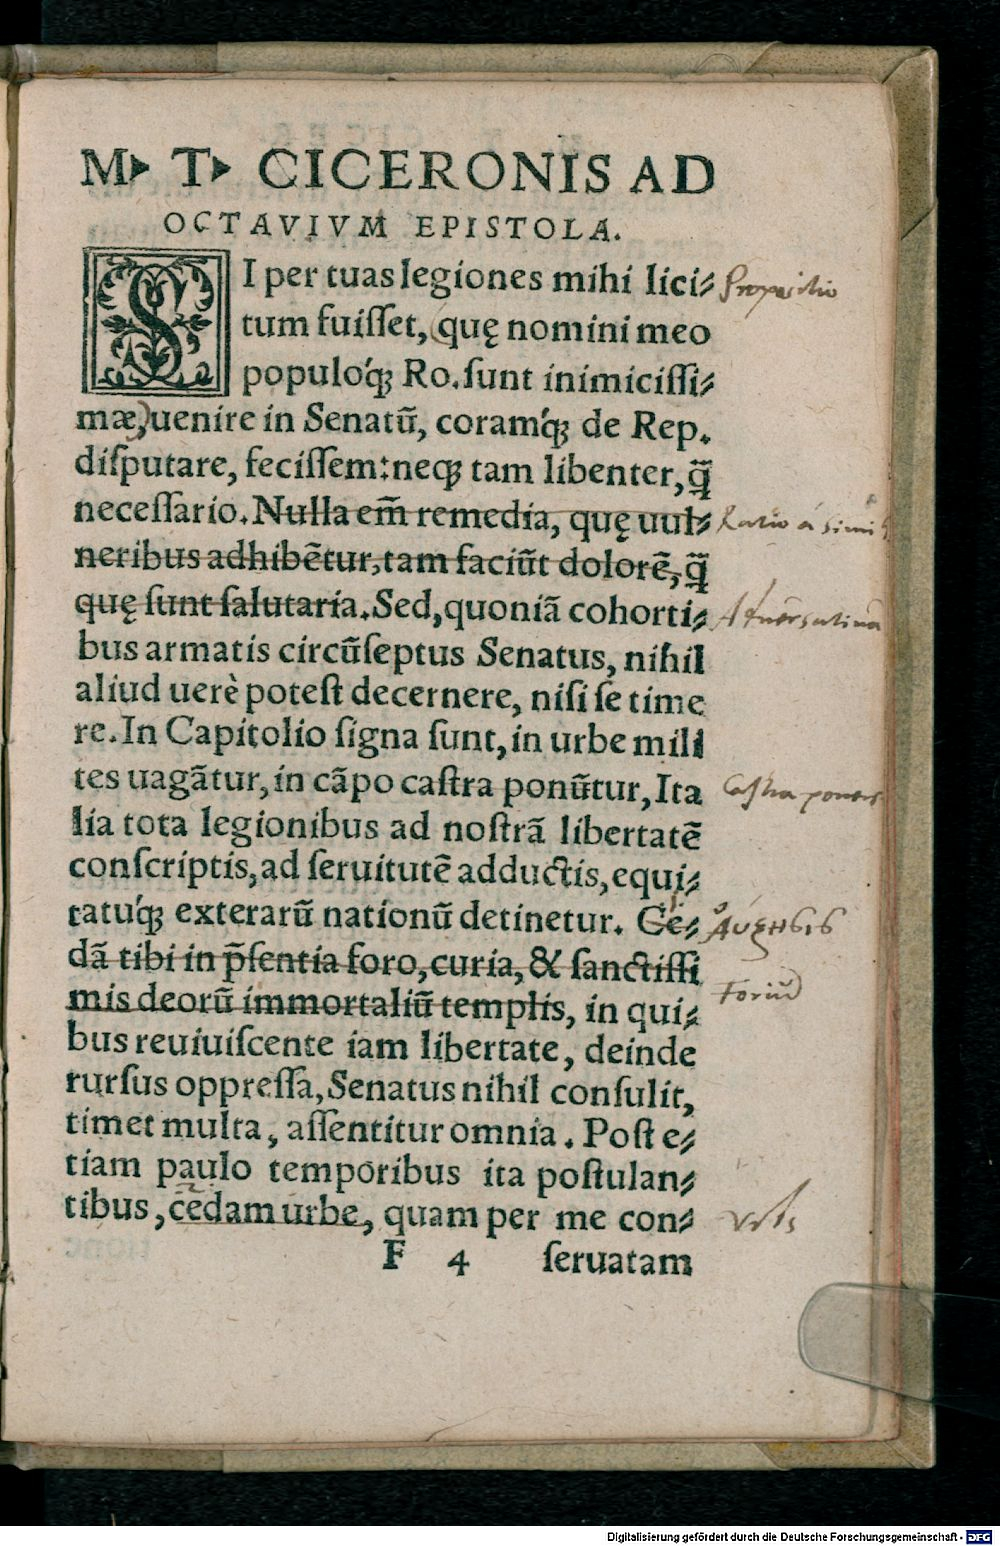 M. T. CICERONIS AD
OCTAVIVM EPISTOLA.
SI per tuas legiones mihi lici- Propositio
tum fuiſſet, (quę nomini meo
populoq́ꝫ Ro. ſunt inimiciſſi-
mæ) uenire in Senatũ, coramq́ꝫ de Rep.
diſputare, feciſſem: neqꝫ tam libenter, q̃
neceſſario. Nulla em̃ remedia, quę uul- Ratio à simili
neribus adhibẽtur, tam faciũt dolorẽ, q̃
quę ſunt ſalutaria. Sed, quoniã cohorti-
bus armatis circũſeptus Senatus, nihil
aliud uerè poteſt decernere, niſi ſe time
re. In Capitolio ſigna ſunt, in urbe mili
tes uagãtur, in cãpo caſtra ponũtur, Ita Castra
lia tota legionibus ad noſtrã libertatẽ
conſcriptis, ad ſeruitutẽ adductis, equi-
tatuq́ꝫ exterarũ nationũ detinetur. Ce-
dã tibi in p̃ſentia foro, curia, & ſanctiſſi
mis deorũ immortaliũ templis, in qui-
bus reuiuiſcente iam libertate, deinde
rurſus oppreſſa, Senatus nihil conſulit,
timet multa, aſſentitur omnia. Poſt e-
tiam paulo temporibus ita poſtulan-
tibus, cedam urbe, quam per me con-
F 4 ſeruatam
Digitalisierung gefördert durch die Deutsche Forschungsgemeinschaft - DFG